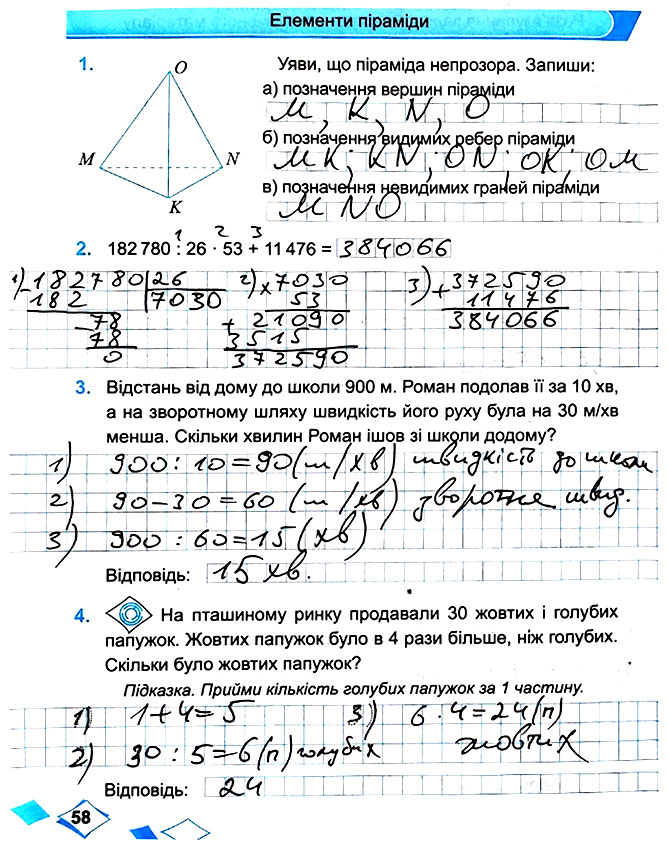 Елементи піраміди
1.
O
M
N
K
Уяви, що піраміда непрозора. Запиши:
а) позначення вершин піраміди
M, K, N, O
б) позначення видимих ребер піраміди
MK; KN, ON; OK; OM
в) позначення невидимих граней піраміди
MNO
1 2 3
2. 182 780 : 26 · 53 + 11 476 = 384066
1) - 182780 | 26
182 7030
- 78
78
0
2) × 7030
53
+ 21090
3515
372590
3) + 372590
11476
384066
3. Відстань від дому до школи 900 м. Роман подолав її за 10 хв,
а на зворотному шляху швидкість його руху була на 30 м/хв
менша. Скільки хвилин Роман ішов зі школи додому?
1) 900 : 10 = 90 (м/хв) швидкість до школи
2) 90 - 30 = 60 (м/хв) зворотне швид.
3) 900 : 60 = 15 (хв)
Відповідь: 15 хв.
4. На пташиному ринку продавали 30 жовтих і голубих
папужок. Жовтих папужок було в 4 рази більше, ніж голубих.
Скільки було жовтих папужок?
Підказка. Прийми кількість голубих папужок за 1 частину.
1) 1 + 4 = 5 3) 6 · 4 = 24 (п)
2) 30 : 5 = 6 (п) голубих жовтих
Відповідь: 24
58